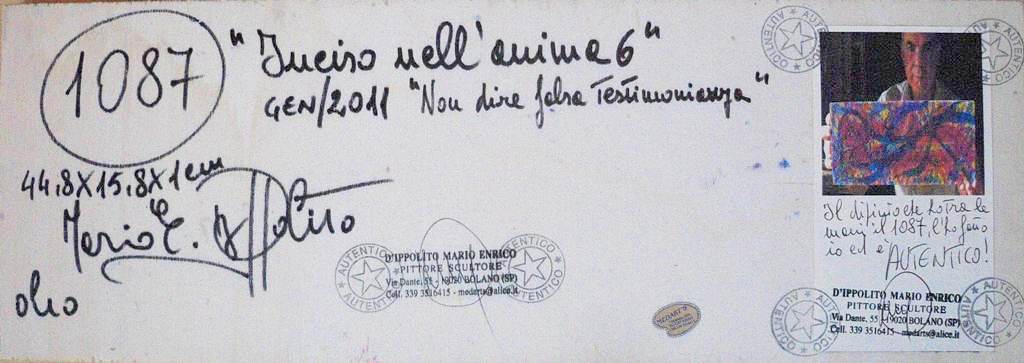 1087
"Inciso nell'anima 6"
GEN/2011 "Non dire falsa Testimonianza"
44,8X15,8X1cm
Mario E. D'Ippolito
olio
AUTENTICO AUTENTICO
D'IPPOLITO MARIO ENRICO
PITTORE SCULTORE
Via Dante, 55 - 19020 BOLANO (SP)
Cell. 339 3516415 - modarts@alice.it
AUTENTICO AUTENTICO
Il dipinto che ho tra le
mani il 1087, l'ho fatto
io ed è AUTENTICO!
D'IPPOLITO MARIO ENRICO
PITTORE SCULTORE
Via Dante, 55 - 19020 BOLANO (SP)
Cell. 339 3516415 - modarts@alice.it
AUTENTICO AUTENTICO